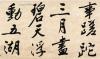 事蹉跎
三月盡
碧天浮
動五湖